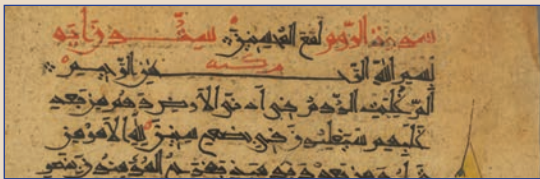 سورة الروم
مكية
بسم الله الرحمن الرحيم
الم غلبت الروم في ادنى الارض وهم من بعد
غلبهم سيغلبون في بضع سنين لله الامر من
قبل ومن بعد ويومئذ يفرح المؤمنون بنصر